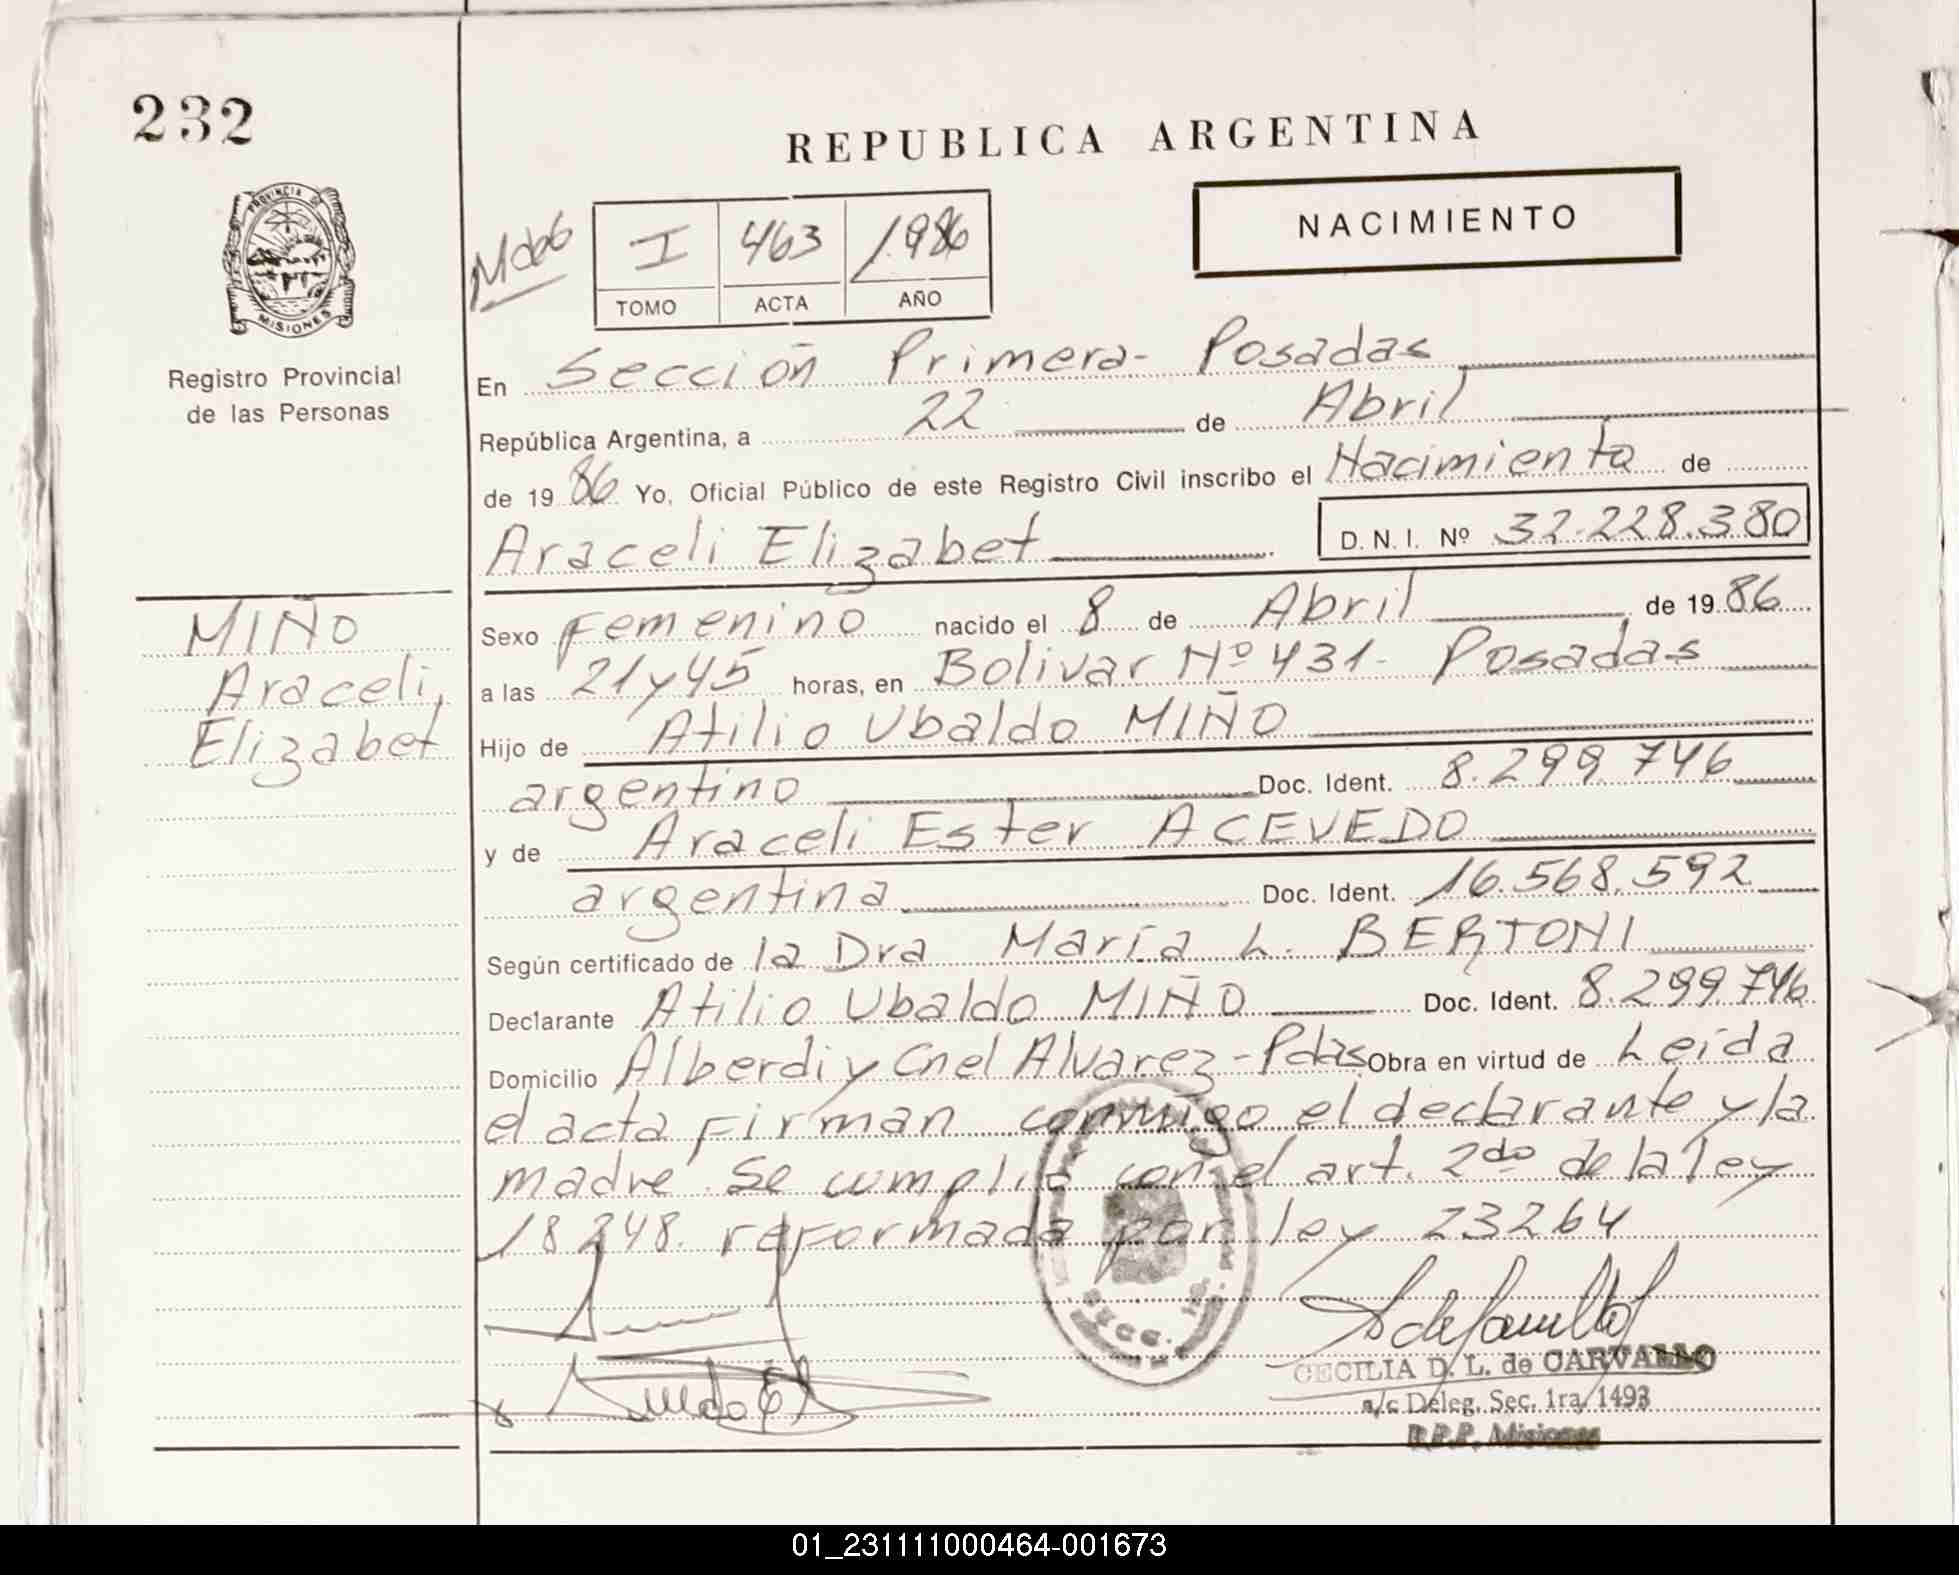 232
REPUBLICA ARGENTINA
NACIMIENTO
I 463 1.986
TOMO ACTA AÑO
PROVINCIA DE
MISIONES
Registro Provincial
de las Personas
En Sección Primera- Posadas
República Argentina, a 22 de Abril
de 1986 Yo, Oficial Público de este Registro Civil inscribo el Nacimiento de
Araceli Elizabet D. N. I. Nº 32.228.380
MIÑO
Araceli,
Elizabet
Sexo Femenino nacido el 8 de Abril de 1986
a las 21 y 45 horas, en Bolivar Nº 431- Posadas
Hijo de Atilio Ubaldo MIÑO
argentino Doc. Ident. 8.299.746
y de Araceli Ester ACEVEDO
argentina Doc. Ident. 16.568.592
Según certificado de la Dra María L. BERTONI
Declarante Atilio Ubaldo MIÑO Doc. Ident. 8.299.746
Domicilio Alberdi y Cnel Alvarez-Pdas Obra en virtud de Leída
el acta firman conmigo el declarante y la
madre. Se cumplió con el art. 2do de la ley
18248. reformada por ley 23264
SECC.
CECILIA D. L. de CARVALLO
a/c Deleg. Sec. 1ra. 1493
R.P.P. Misiones
01_231111000464-001673